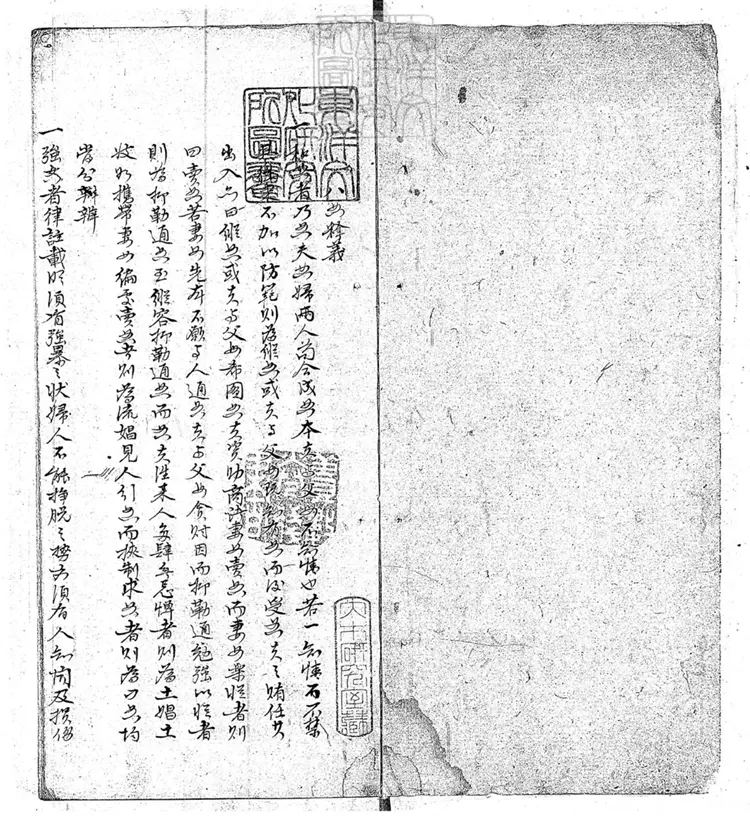 姦釋義
一和姦者乃姦夫姦婦兩人苟合成姦本夫與父母不知情也若一知情而不禁
不加以防範則為縱姦或夫與父母既知有姦而後受姦夫之賄任其
出入亦曰縱姦或夫與父母希圖姦夫資助商謀妻女賣姦而妻女樂從者則
曰賣姦若妻女先本不願與人通姦夫與父母貪財因而抑勒通姦強以從者
則為抑勒通姦至縱容抑勒通姦而姦夫往來人多肆無忌憚者則為土娼土
妓如攜帶妻女徧處賣姦者則為流娼見人引姦而挾制求姦者則為刁姦均
當分辨
一強姦者律註載明須有強暴之狀婦人不能掙脫之情亦須有人知聞及損傷
東洋文化研究所圖書
大木研究室藏